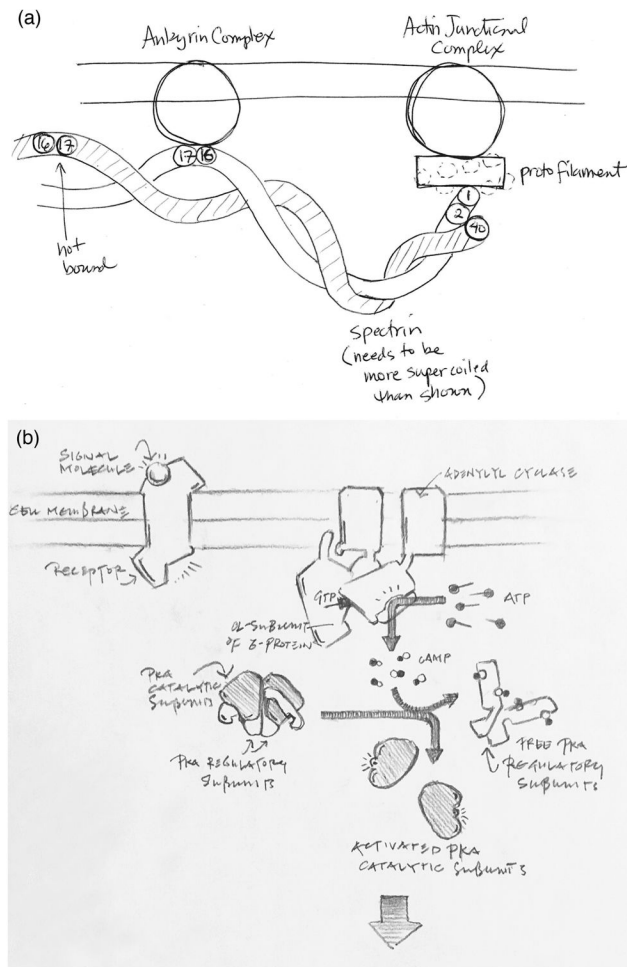 (a)
Ankyrin Complex
Actin Junctional
Complex
16 17
17 16
protofilament
1
2
40
not
bound
spectrin
(needs to be
more supercoiled
than shown)
(b)
SIGNAL
MOLECULE
ADENYLYL CYCLASE
CELL MEMBRANE
RECEPTOR
GTP
ATP
α-SUBUNIT
OF G-PROTEIN
cAMP
PKA
CATALYTIC
SUBUNITS
PKA REGULATORY
SUBUNITS
FREE PKA
REGULATORY
SUBUNITS
ACTIVATED PKA
CATALYTIC SUBUNITS